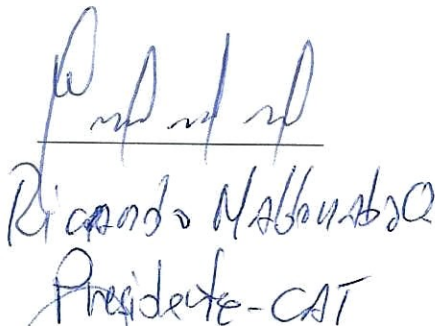 Ricardo Maldonado Q
Presidente - CAT